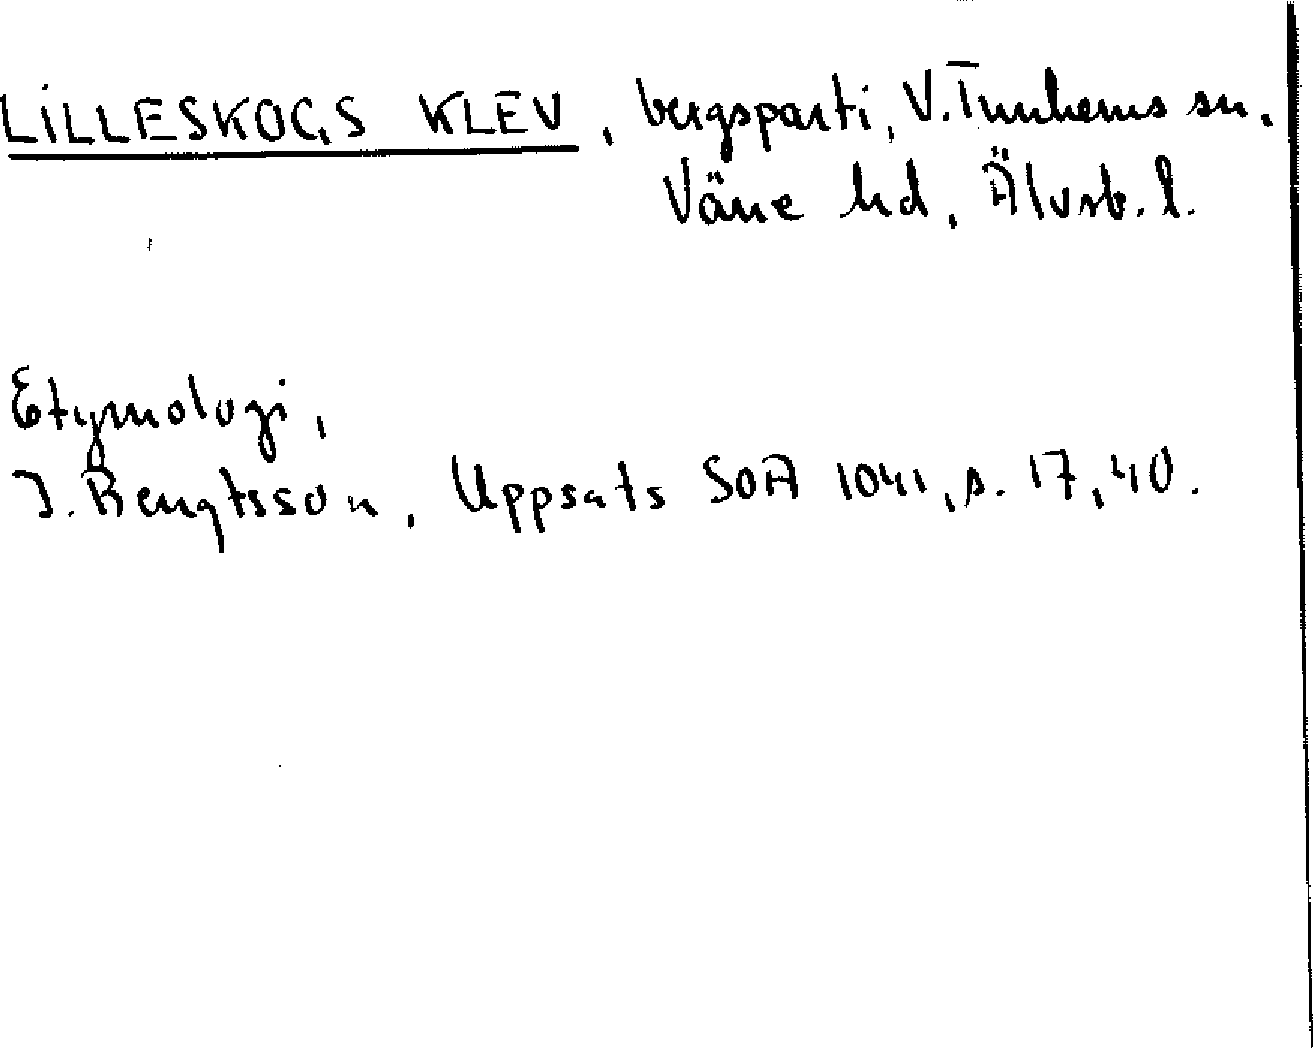 LILLESKOGS KLEV, bergsparti, V. Tunhems sn.
Väne hd, Älvsb. l.
Etymologi,
J. Bengtsson, Uppsats SOA 1041, s. 17, 40.